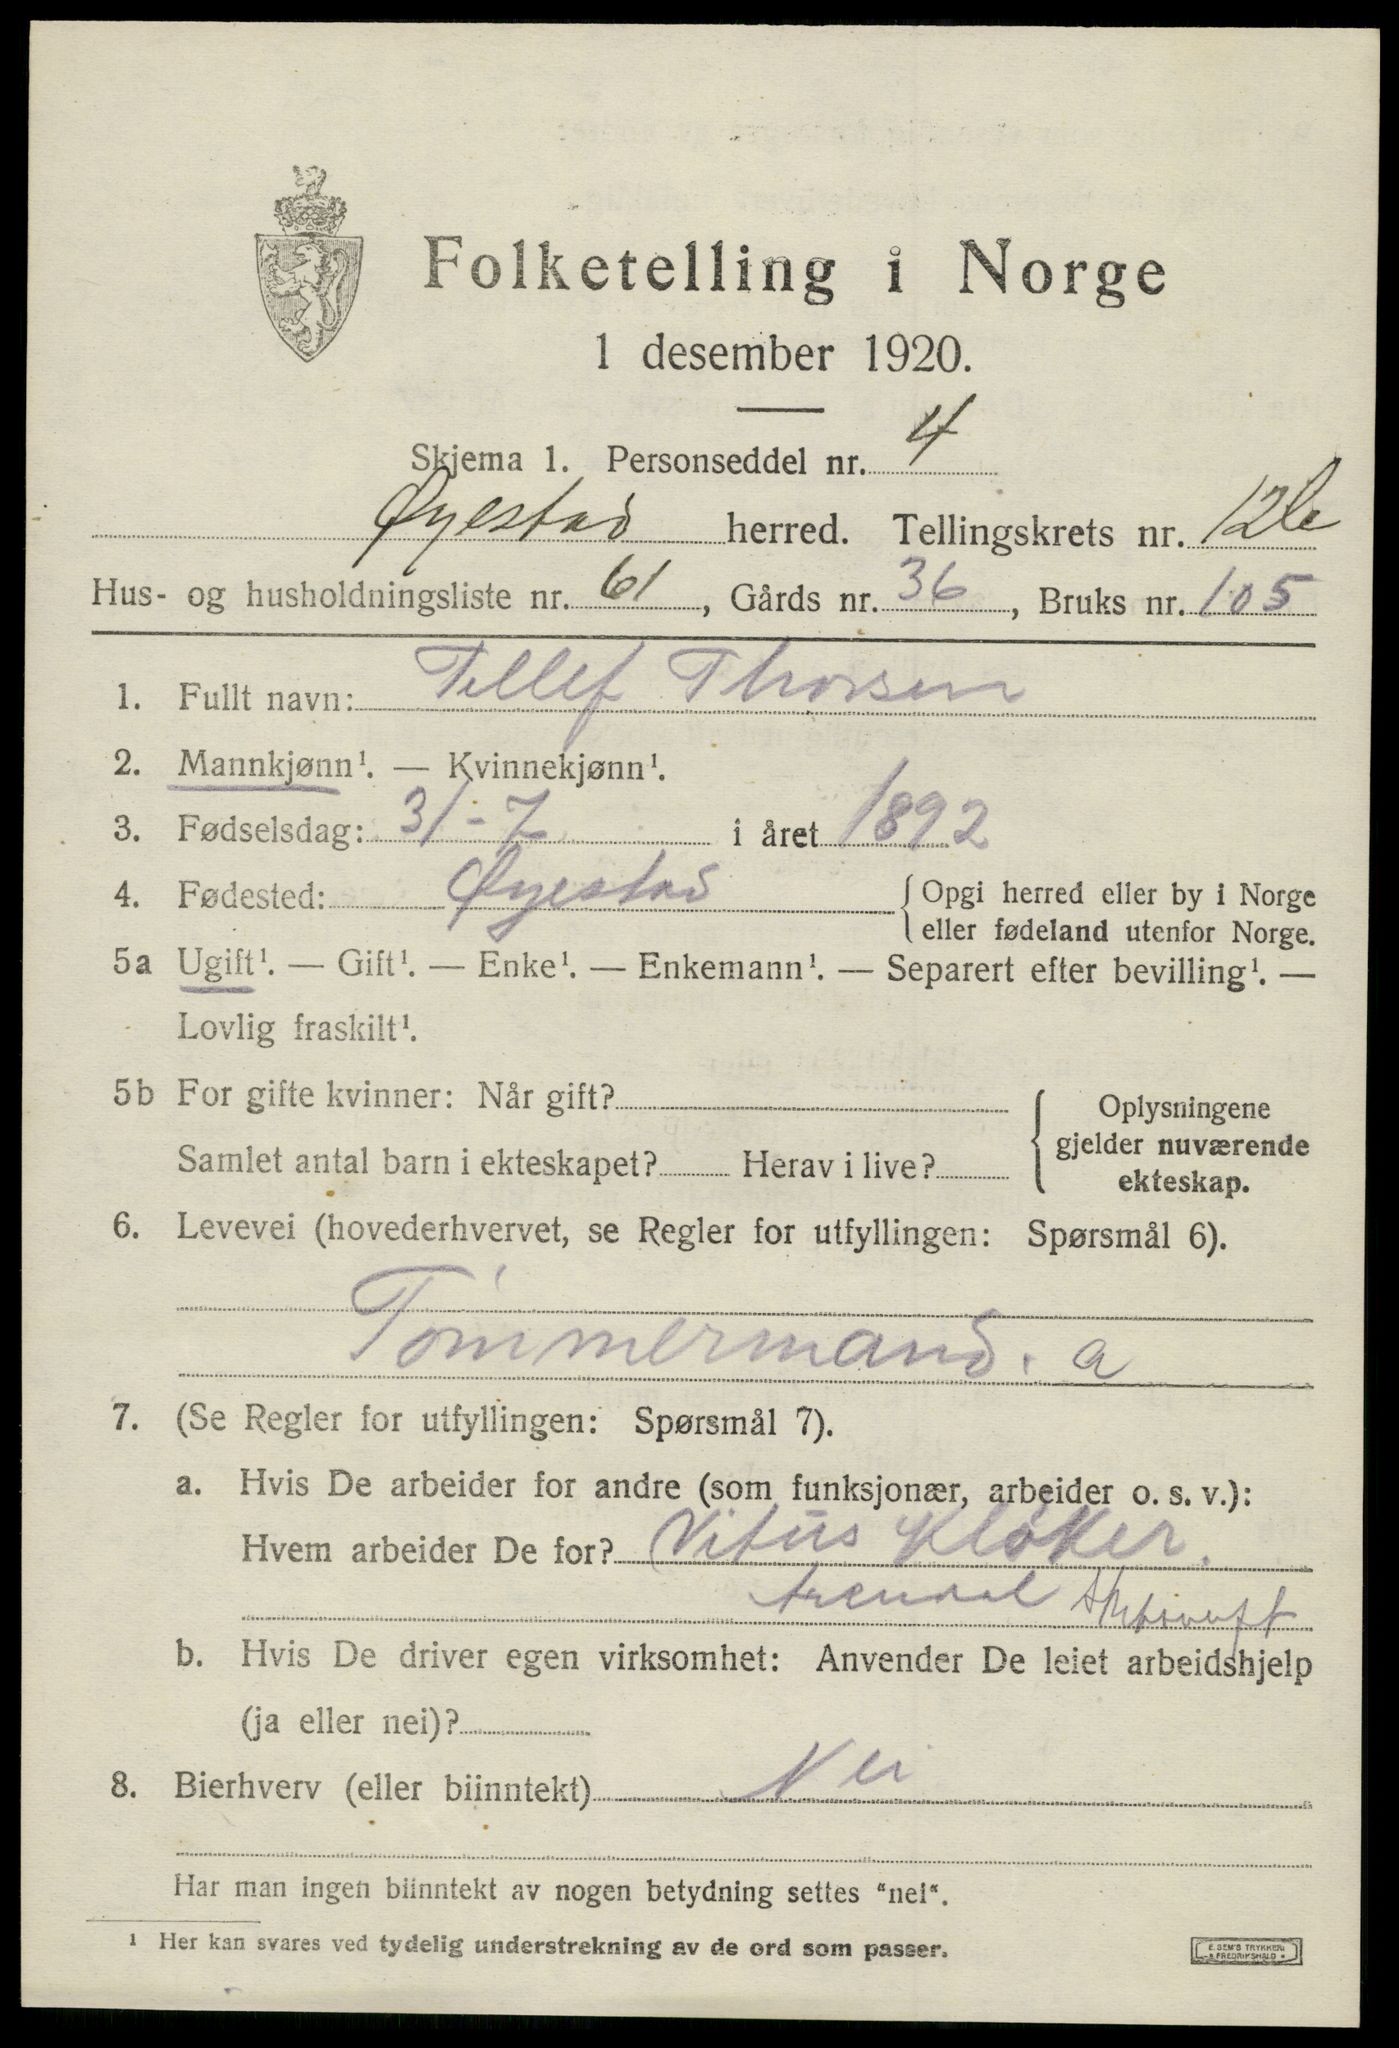 Folketelling i Norge
1 desember 1920.
Skjema 1. Personseddel nr. 4
Øyestad herred. Tellingskrets nr. 12b
Hus- og husholdningsliste nr. 61, Gårds nr. 36, Bruks nr. 105
1. Fullt navn: Tellef Thorsen
2. Mannkjønn¹. — Kvinnekjønn¹.
3. Fødselsdag: 31-7 i året 1892
4. Fødested: Øyestad {Opgi herred eller by i Norge
eller fødeland utenfor Norge.
5a Ugift¹. — Gift¹. — Enke¹. — Enkemann¹. — Separert efter bevilling¹. —
Lovlig fraskilt¹.
5b For gifte kvinner: Når gift?
Samlet antal barn i ekteskapet? Herav i live?
Oplysningene
gjelder nuværende
ekteskap.
6. Levevei (hovederhvervet, se Regler for utfyllingen: Spørsmål 6).
Tømmermand. a
7. (Se Regler for utfyllingen: Spørsmål 7).
a. Hvis De arbeider for andre (som funksjonær, arbeider o. s. v.):
Hvem arbeider De for? Vitus Kløker.
Arendal
b. Hvis De driver egen virksomhet: Anvender De leiet arbeidshjelp
(ja eller nei)?
8. Bierhverv (eller biinntekt) Nei
Har man ingen biinntekt av nogen betydning settes "nei".
¹ Her kan svares ved tydelig understrekning av de ord som passer.
E. SEM'S TRYKKERI
FREDRIKSHALD